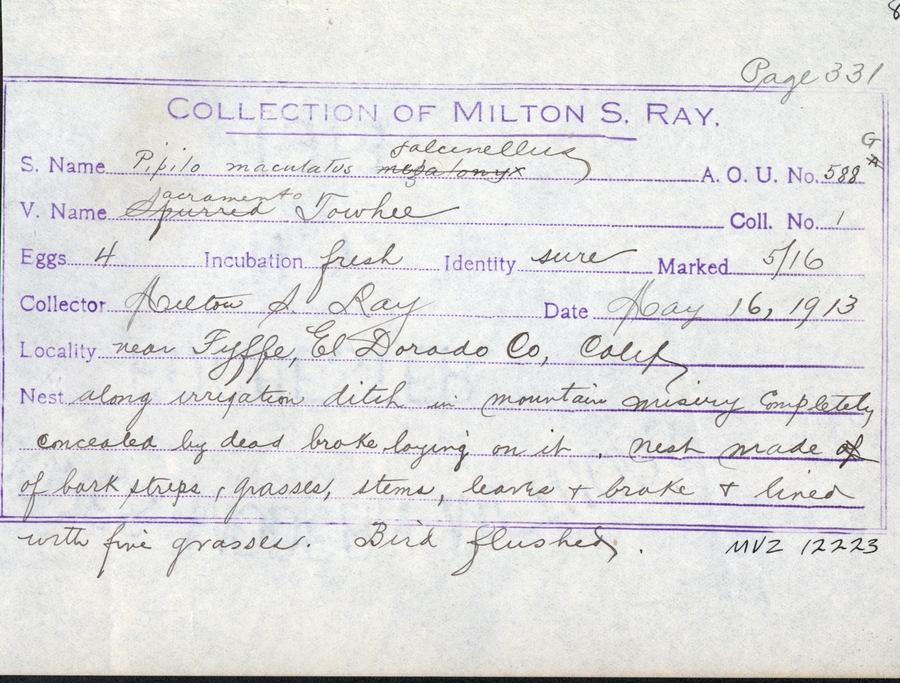 Page 331
COLLECTION OF MILTON S. RAY.
falcinellus
S. Name Pipilo maculatus megalonyx A. O. U. No. 588 G
Sacramento
V. Name Spurred Towhee Coll. No. 1
Eggs 4 Incubation fresh Identity sure Marked 5/16
Collector Milton S. Ray Date May 16, 1913
Locality near Fyffe, El Dorado Co, Calif
Nest along irrigation ditch in mountain misery Completely
concealed by dead brake laying on it. Nest made of
of bark strips, grasses, stems, leaves + brake + lined
with fine grasses. Bird flushed.
MVZ 12223